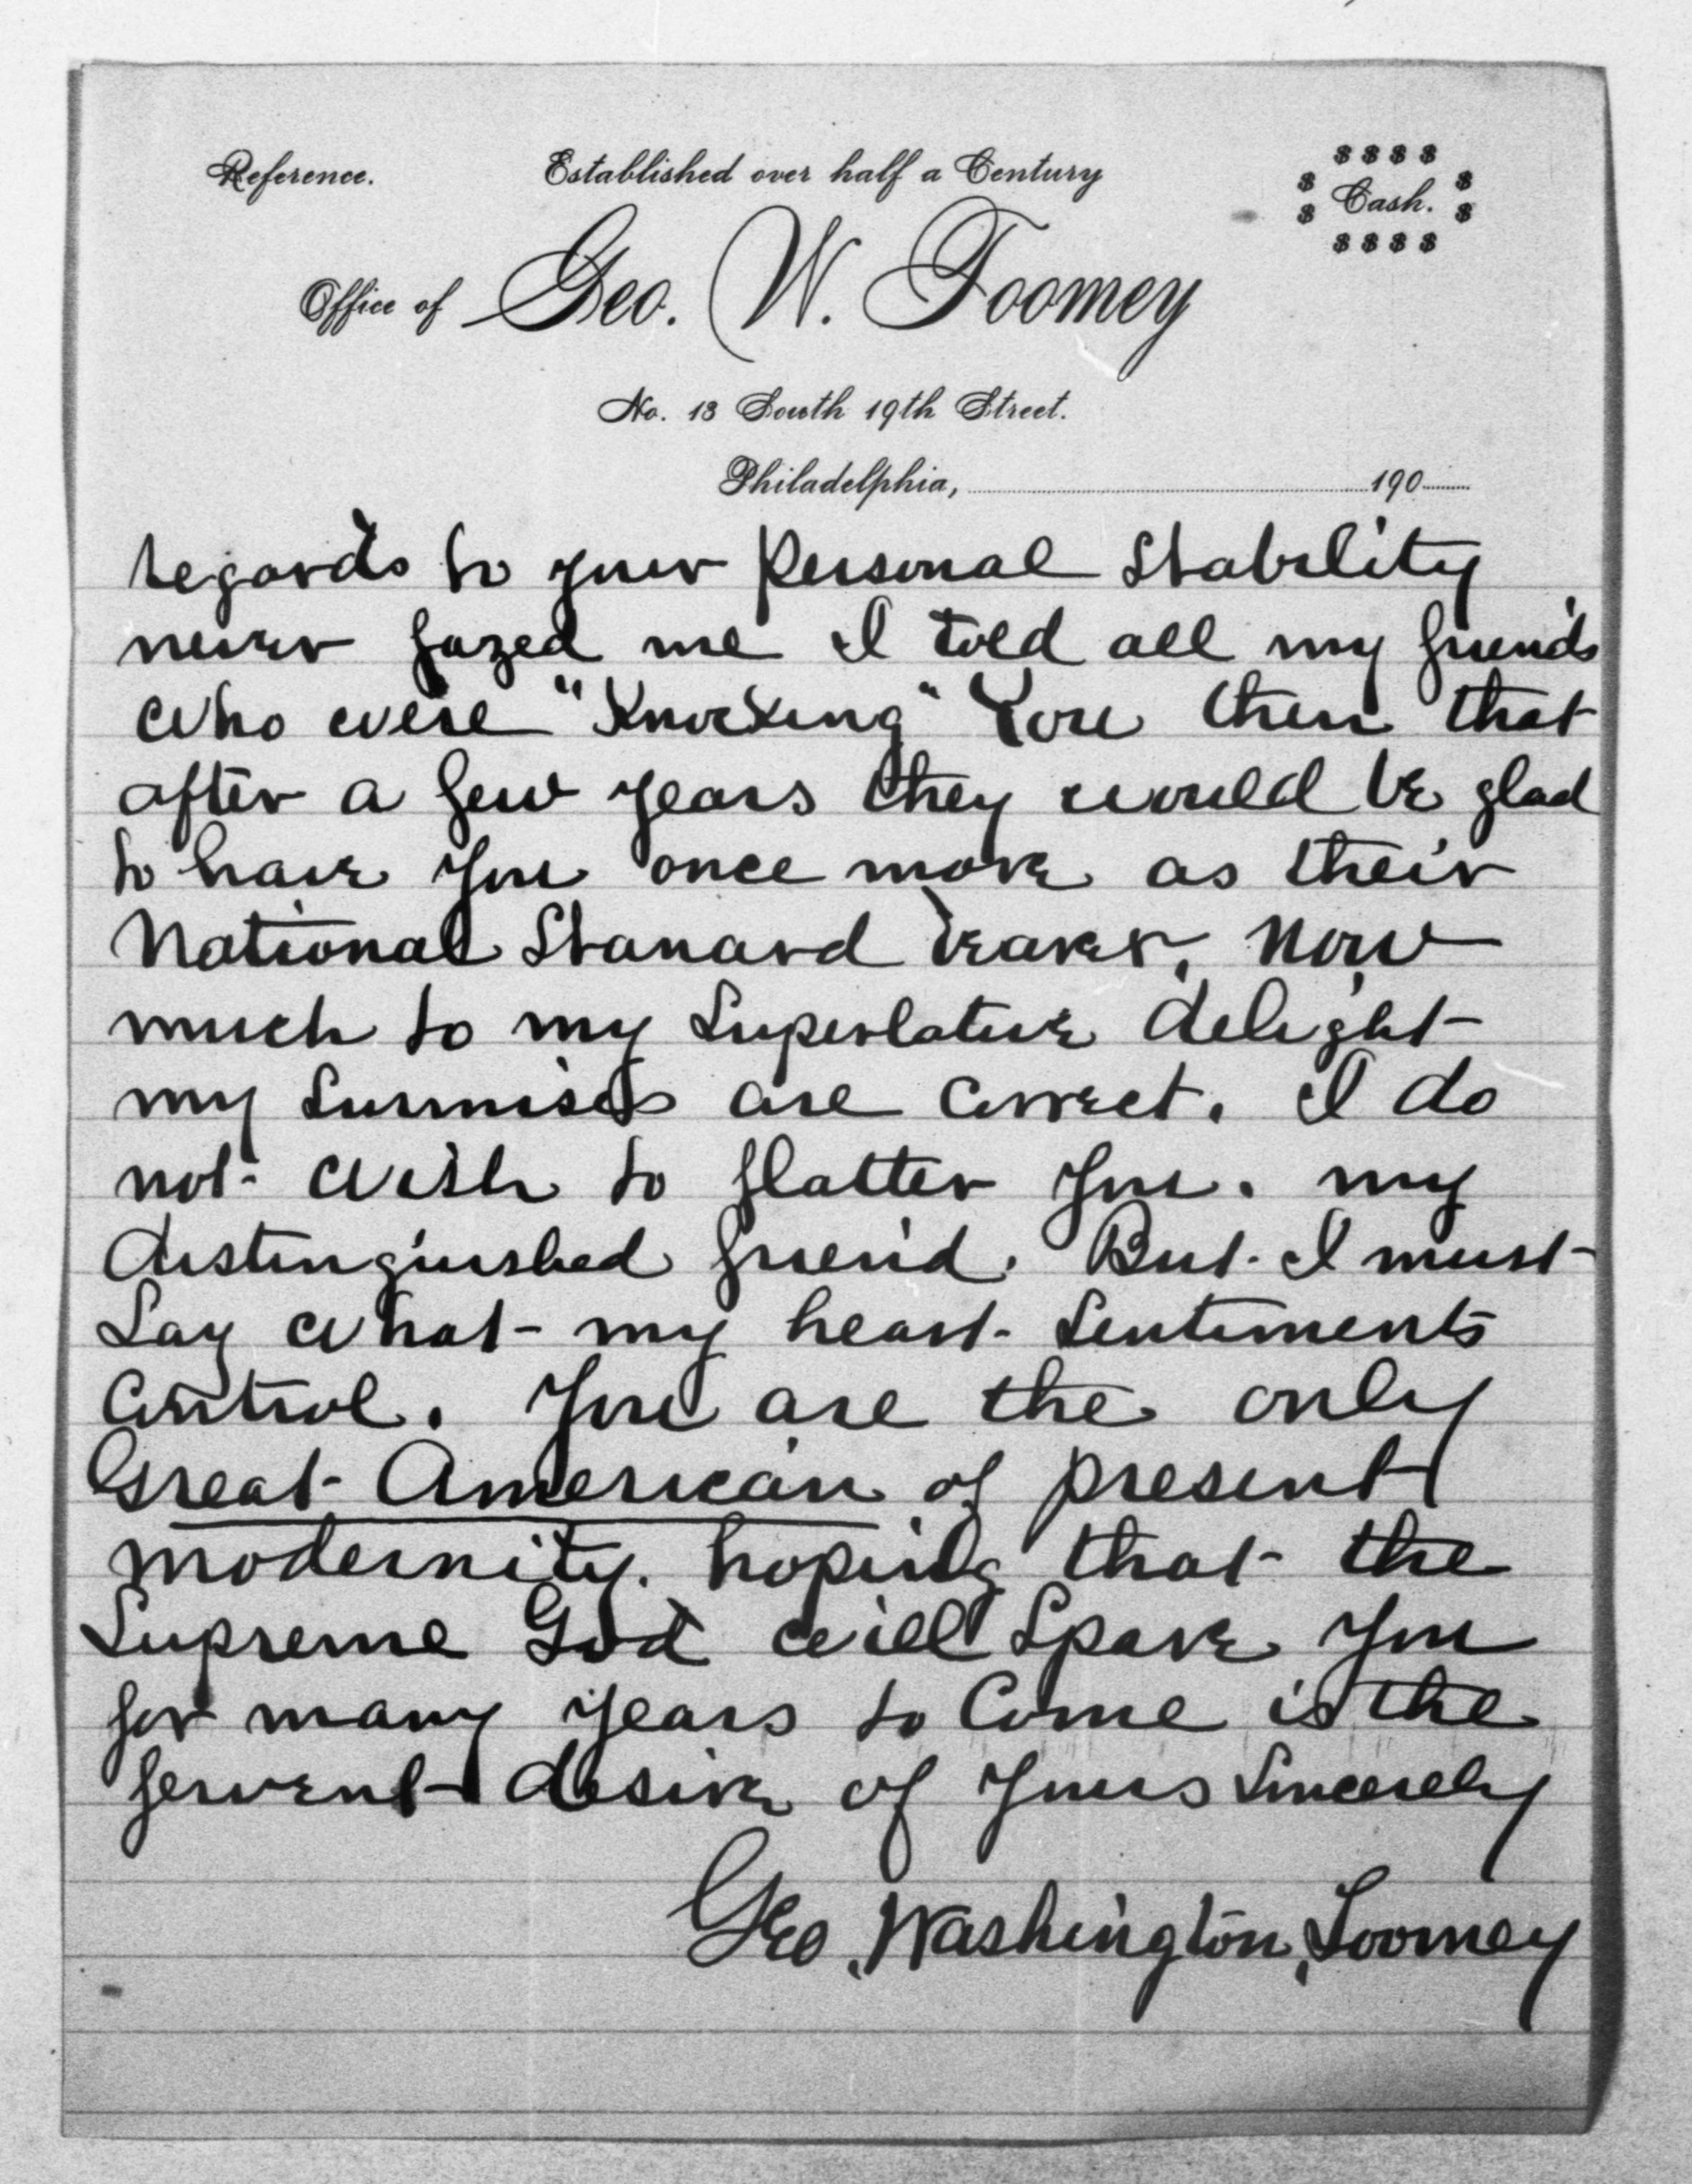 Reference. Established over half a Century
$ $ $ $
$ Cash. $
$ $
$ $ $ $
Office of Geo. W. Toomey
No. 13 South 19th Street.
Philadelphia, 190
regards to your personal Stability
never fazed me I told all my friends
who were "Knocking" You then that
after a few years they would be glad
to have you once more as their
National Stanard bearer, Now
much to my Superlative delight
my Surmises are correct. I do
not wish to flatter you. my
distinguished friend. But I must
Say what my heart Sentiments
Control. You are the only
Great American of present
modernity. hoping that the
Supreme God will Spare you
for many years to Come is the
fervent desire of yours Sincerely
Geo, Washington, Toomey